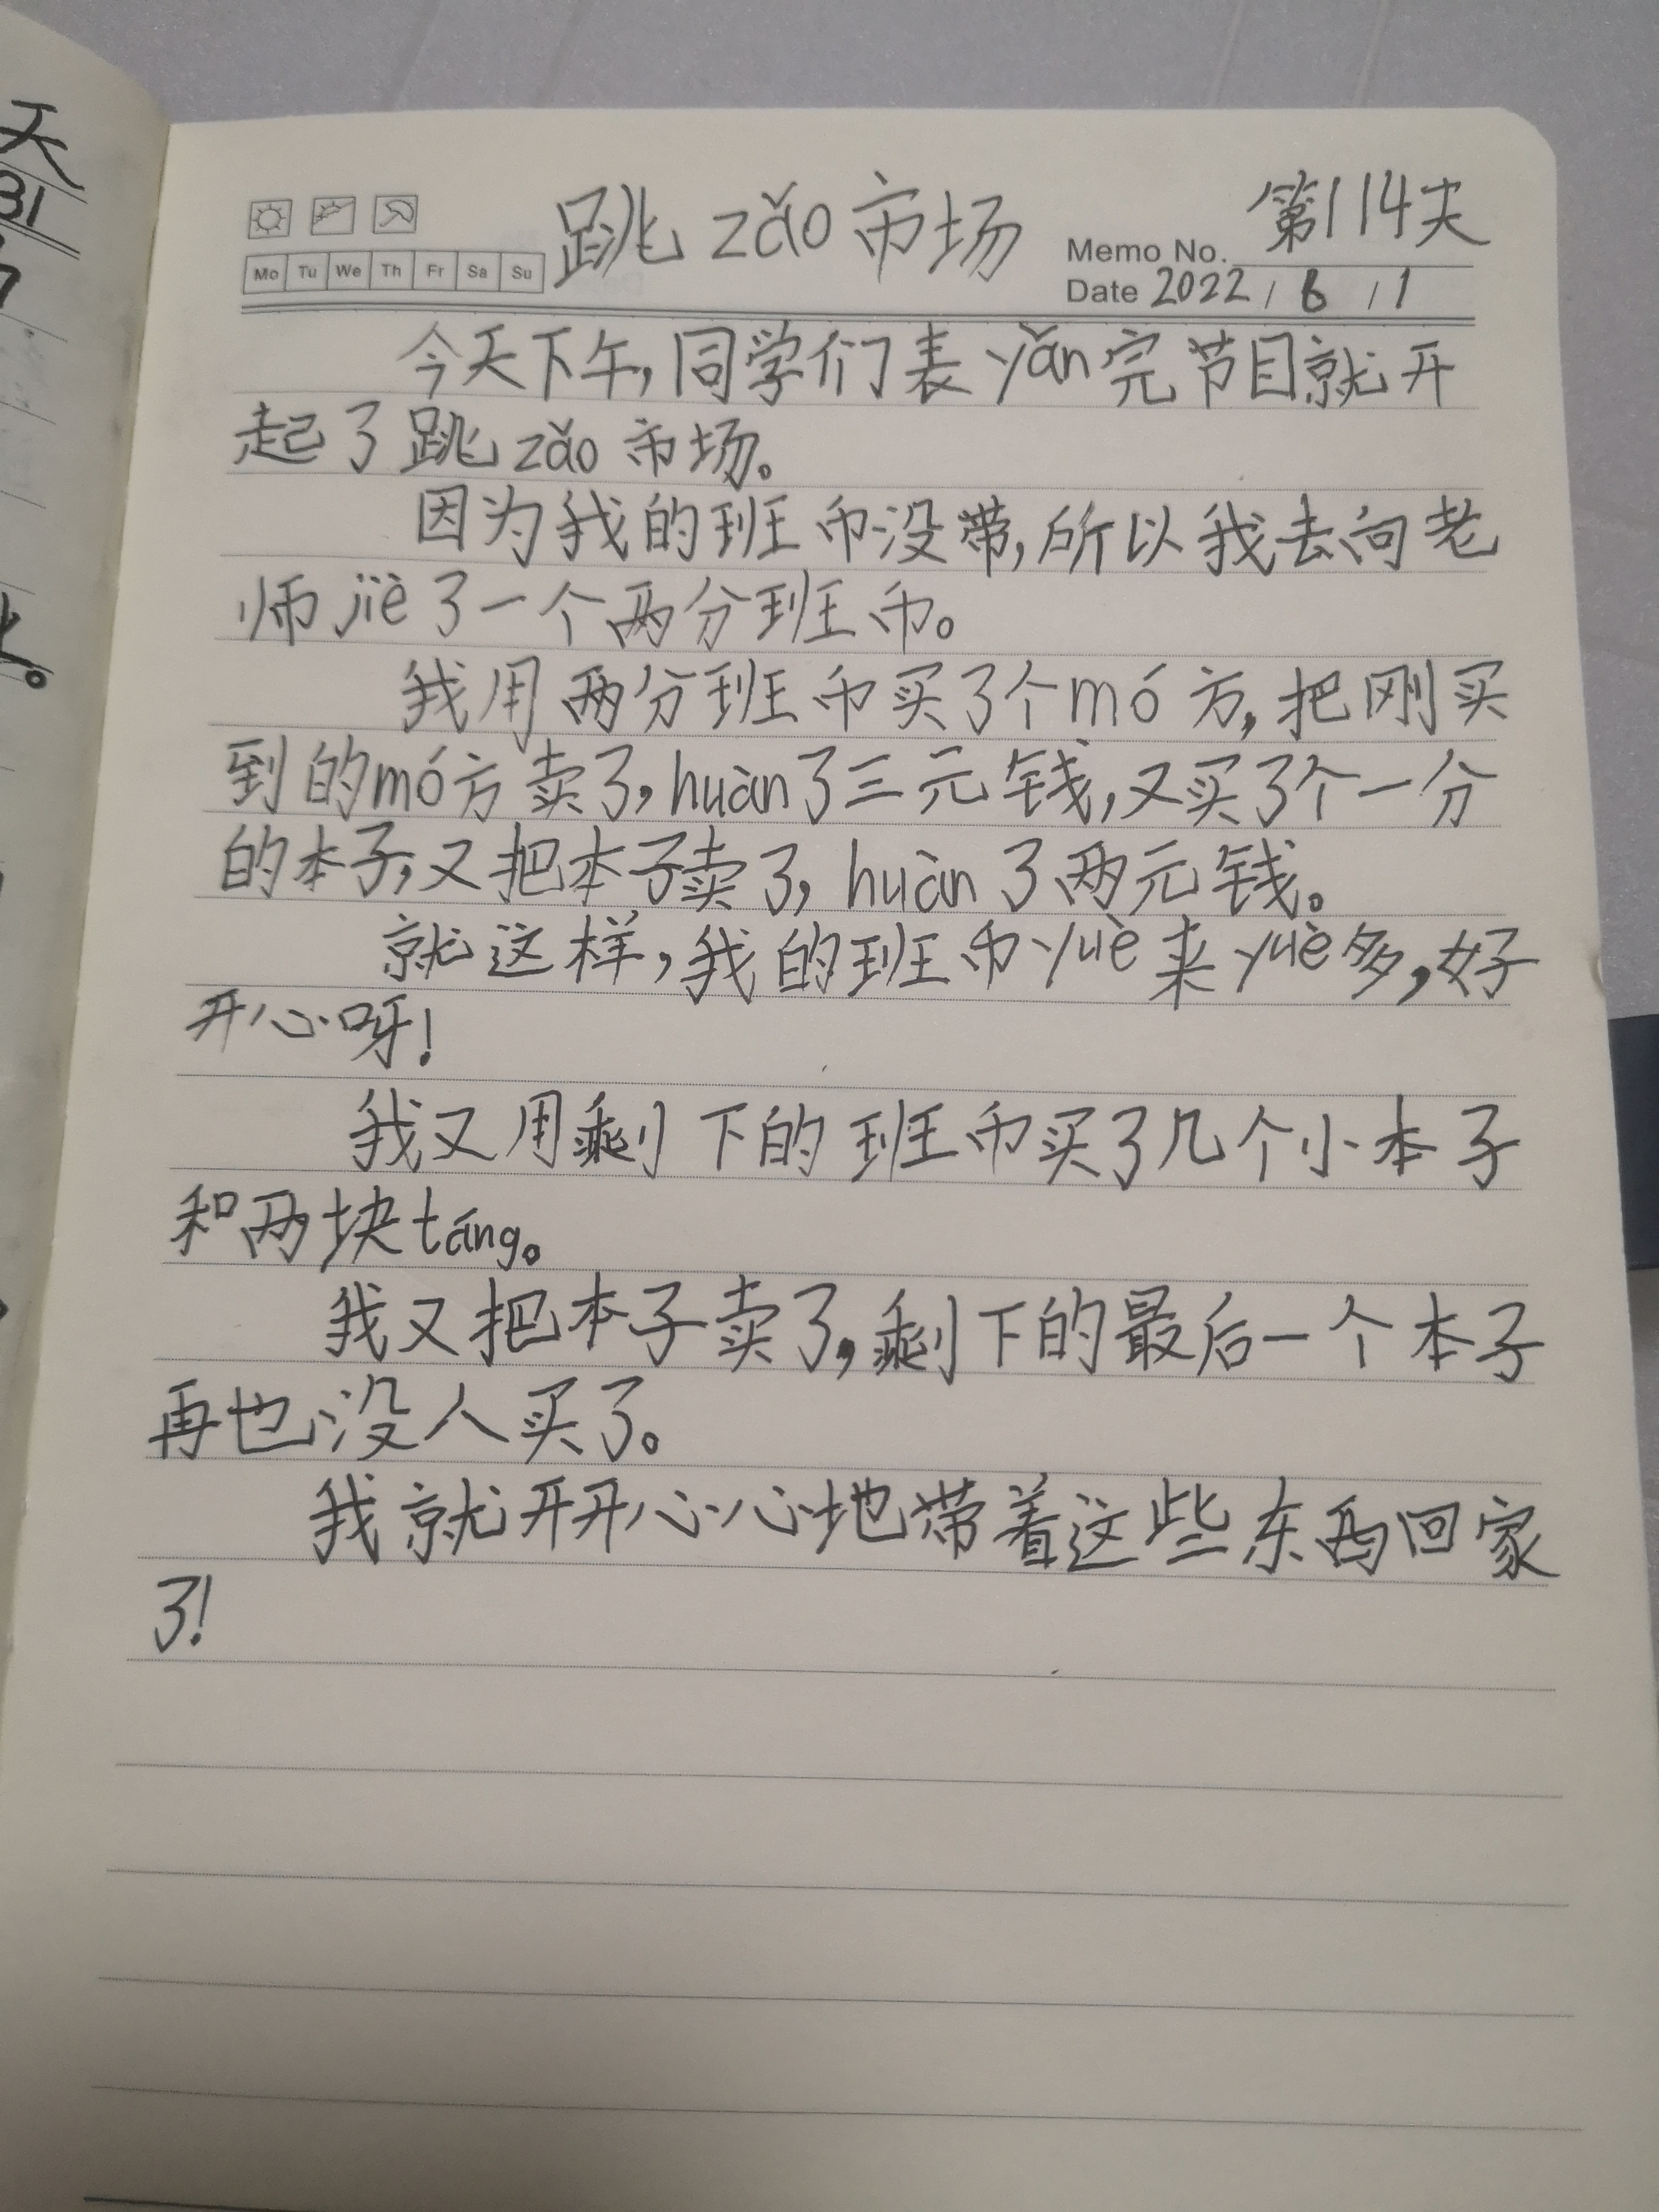 天
31
跳 zǎo 市场
第114天
Memo No.
Mo Tu We Th Fr Sa Su
Date 2022 / 6 / 1
今天下午,同学们表yǎn完节目就开
起了跳zǎo市场。
因为我的班币没带,所以我去向老
师jiè了一个两分班币。
我用两分班币买了个mó方,把刚买
到的mó方卖了,huàn了三元钱,又买了个一分
的本子,又把本子卖了,huàn了两元钱。
就这样,我的班币yuè来yuè多,好
开心呀!
我又用剩下的班币买了几个小本子
和两块táng。
我又把本子卖了,剩下的最后一个本子
再也没人买了。
我就开开心心地带着这些东西回家
了!